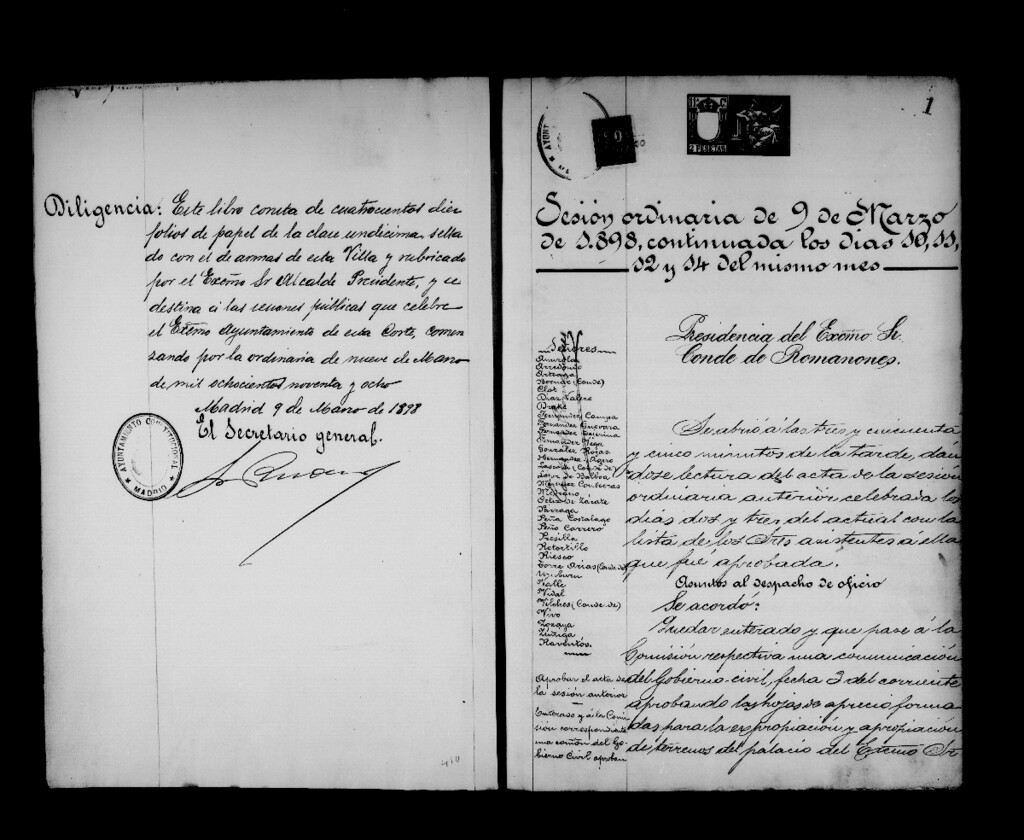 Diligencia: Este libro consta de cuatrocientos diez
folios de papel de la clase undécima, sella
do con el de armas de esta Villa y rubricado
por el Excmo Sr Alcalde Presidente, y se
destina á las sesiones públicas que celebre
el Excmo Ayuntamiento de esta Corte, comen
zando por la ordinaria de nueve de Marzo
de mil ochocientos noventa y ocho
Madrid 9 de Marzo de 1898
El Secretario general.
AYUNTAMIENTO CONSTITUCIONAL
★ MADRID ★
410
1
2 PESETAS
Sesión ordinaria de 9 de Marzo
de 1.898, continuada los dias 10, 11,
12 y 14 del mismo mes
Presidencia del Excmo Sr.
Conde de Romanones.
Señores
Arredondo
Arteaga
Bornos (Conde)
Clot
Diaz Valero
Drake
Fernández Campa
Fernández Guevara
González Rojas
López de Balboa
Menéndez Contreras
Medrano
Ortiz de Zárate
Párraga
Peña Costalago
Peña Carrero
Pinilla
Retortillo
Riesco
Torre Arias (Conde de)
Valle
Vidal
Vilches (Conde de)
Vivo
Zozaya
Zúñiga
Raventós.
Aprobar el acta de
la sesión anterior
Enterado y á la Comi
sión correspondiente
una comón del Go-
bierno Civil aproban
Se abrió á las tres y cincuenta
y cinco minutos de la tarde, dán
dose lectura del acta de la sesión
ordinaria anterior celebrada los
dias dos y tres del actual con la
lista de los Sres asistentes á ella
que fué aprobada.
Asuntos al despacho de oficio
Se acordó:
Quedar enterado y que pase á la
Comisión respectiva una comunicación
del Gobierno civil, fecha 3 del corriente
aprobando las hojas de aprecio forma
das para la expropiación y apropiación
de terrenos del palacio del Excmo Sr